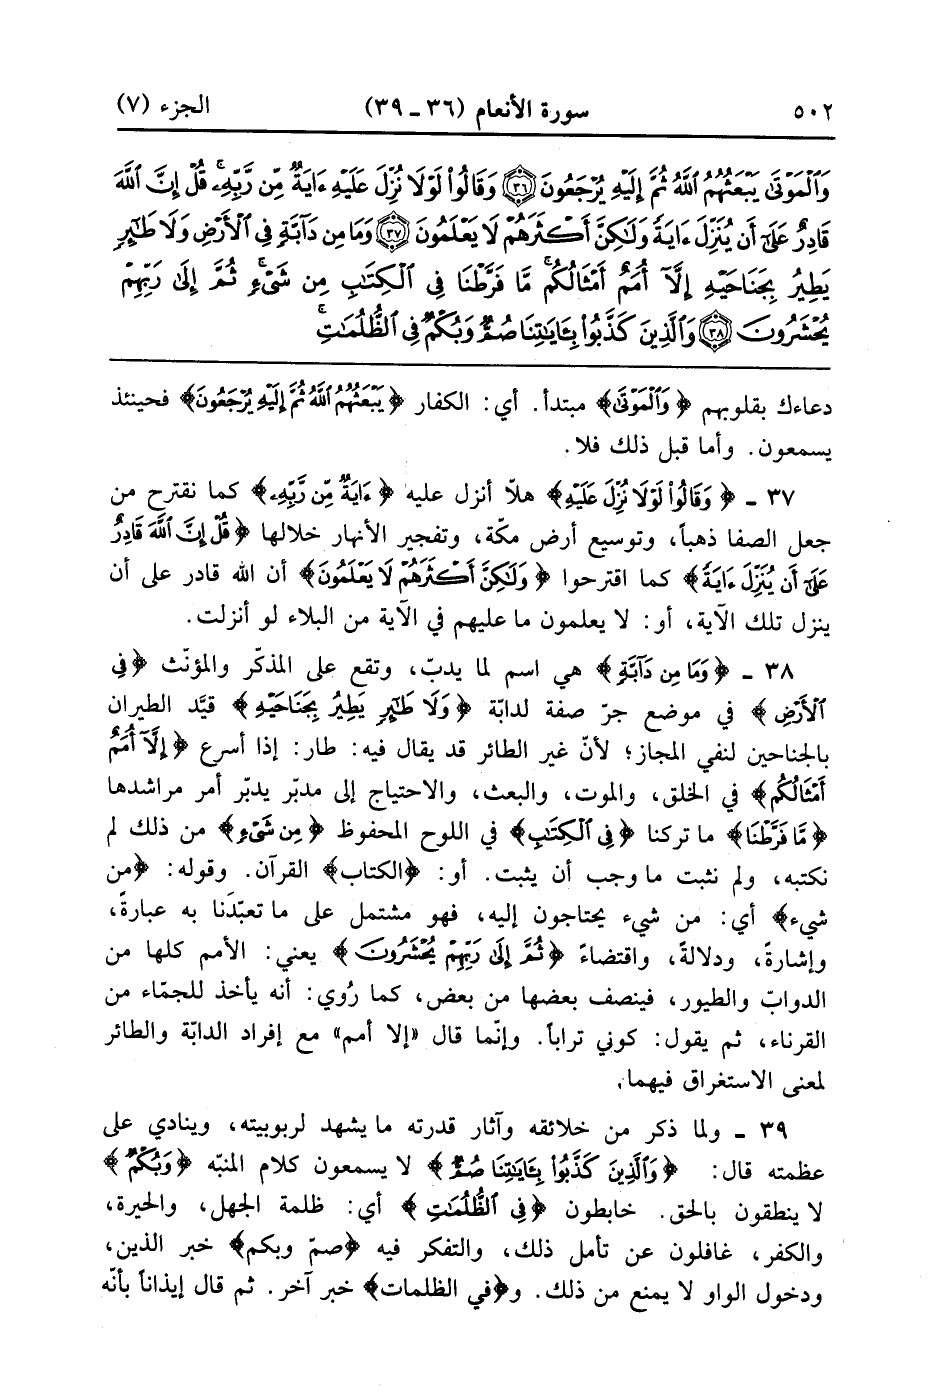 ٥٠٢ سورة الأنعام (٣٦ ـ ٣٩) الجزء (٧)
وَٱلْمَوْتَىٰ يَبْعَثُهُمُ ٱللَّهُ ثُمَّ إِلَيْهِ يُرْجَعُونَ ﴿٣٦﴾ وَقَالُوا۟ لَوْلَا نُزِّلَ عَلَيْهِ ءَايَةٌ مِّن رَّبِّهِۦ ۚ قُلْ إِنَّ ٱللَّهَ
قَادِرٌ عَلَىٰٓ أَن يُنَزِّلَ ءَايَةً وَلَٰكِنَّ أَكْثَرَهُمْ لَا يَعْلَمُونَ ﴿٣٧﴾ وَمَا مِن دَآبَّةٍ فِى ٱلْأَرْضِ وَلَا طَٰٓئِرٍ
يَطِيرُ بِجَنَاحَيْهِ إِلَّآ أُمَمٌ أَمْثَالُكُم ۚ مَّا فَرَّطْنَا فِى ٱلْكِتَٰبِ مِن شَىْءٍ ۚ ثُمَّ إِلَىٰ رَبِّهِمْ
يُحْشَرُونَ ﴿٣٨﴾ وَٱلَّذِينَ كَذَّبُوا۟ بِـَٔايَٰتِنَا صُمٌّ وَبُكْمٌ فِى ٱلظُّلُمَٰتِ ۗ
دعاءك بقلوبهم ﴿وَٱلْمَوْتَىٰ﴾ مبتدأ. أي: الكفار ﴿يَبْعَثُهُمُ ٱللَّهُ ثُمَّ إِلَيْهِ يُرْجَعُونَ﴾ فحينئذ
يسمعون. وأما قبل ذلك فلا.
٣٧ ـ ﴿وَقَالُوا۟ لَوْلَا نُزِّلَ عَلَيْهِ﴾ هلاّ أنزل عليه ﴿ءَايَةٌ مِّن رَّبِّهِۦ﴾ كما نقترح من
جعل الصفا ذهباً، وتوسيع أرض مكّة، وتفجير الأنهار خلالها ﴿قُلْ إِنَّ ٱللَّهَ قَادِرٌ
عَلَىٰٓ أَن يُنَزِّلَ ءَايَةً﴾ كما اقترحوا ﴿وَلَٰكِنَّ أَكْثَرَهُمْ لَا يَعْلَمُونَ﴾ أن الله قادر على أن
ينزل تلك الآية، أو: لا يعلمون ما عليهم في الآية من البلاء لو أنزلت.
٣٨ ـ ﴿وَمَا مِن دَآبَّةٍ﴾ هي اسم لما يدبّ، وتقع على المذكّر والمؤنّث ﴿فِى
ٱلْأَرْضِ﴾ في موضع جرّ صفة لدابّة ﴿وَلَا طَٰٓئِرٍ يَطِيرُ بِجَنَاحَيْهِ﴾ قيَّد الطيران
بالجناحين لنفي المجاز؛ لأنّ غير الطائر قد يقال فيه: طار: إذا أسرع ﴿إِلَّآ أُمَمٌ
أَمْثَالُكُم﴾ في الخلق، والموت، والبعث، والاحتياج إلى مدبّر يدبّر أمر مراشدها
﴿مَّا فَرَّطْنَا﴾ ما تركنا ﴿فِى ٱلْكِتَٰبِ﴾ في اللوح المحفوظ ﴿مِن شَىْءٍ﴾ من ذلك لم
نكتبه، ولم نثبت ما وجب أن يثبت. أو: ﴿الكتاب﴾ القرآن. وقوله: ﴿من
شيء﴾ أي: من شيء يحتاجون إليه، فهو مشتمل على ما تعبّدَنا به عبارةً،
وإشارةً، ودلالةً، واقتضاءً ﴿ثُمَّ إِلَىٰ رَبِّهِمْ يُحْشَرُونَ﴾ يعني: الأمم كلها من
الدوابّ والطيور، فينصف بعضها من بعض، كما رُوي: أنه يأخذ للجمّاء من
القرناء، ثم يقول: كوني تراباً. وإنّما قال «إلا أمم» مع إفراد الدابّة والطائر
لمعنى الاستغراق فيهما.
٣٩ ـ ولما ذكر من خلائقه وآثار قدرته ما يشهد لربوبيته، وينادي على
عظمته قال: ﴿وَٱلَّذِينَ كَذَّبُوا۟ بِـَٔايَٰتِنَا صُمٌّ﴾ لا يسمعون كلام المنبّه ﴿وَبُكْمٌ﴾
لا ينطقون بالحق. خابطون ﴿فِى ٱلظُّلُمَٰتِ﴾ أي: ظلمة الجهل، والحيرة،
والكفر، غافلون عن تأمل ذلك، والتفكر فيه ﴿صمّ وبكم﴾ خبر الذين،
ودخول الواو لا يمنع من ذلك. و﴿في الظلمات﴾ خبر آخر. ثم قال إيذاناً بأنّه